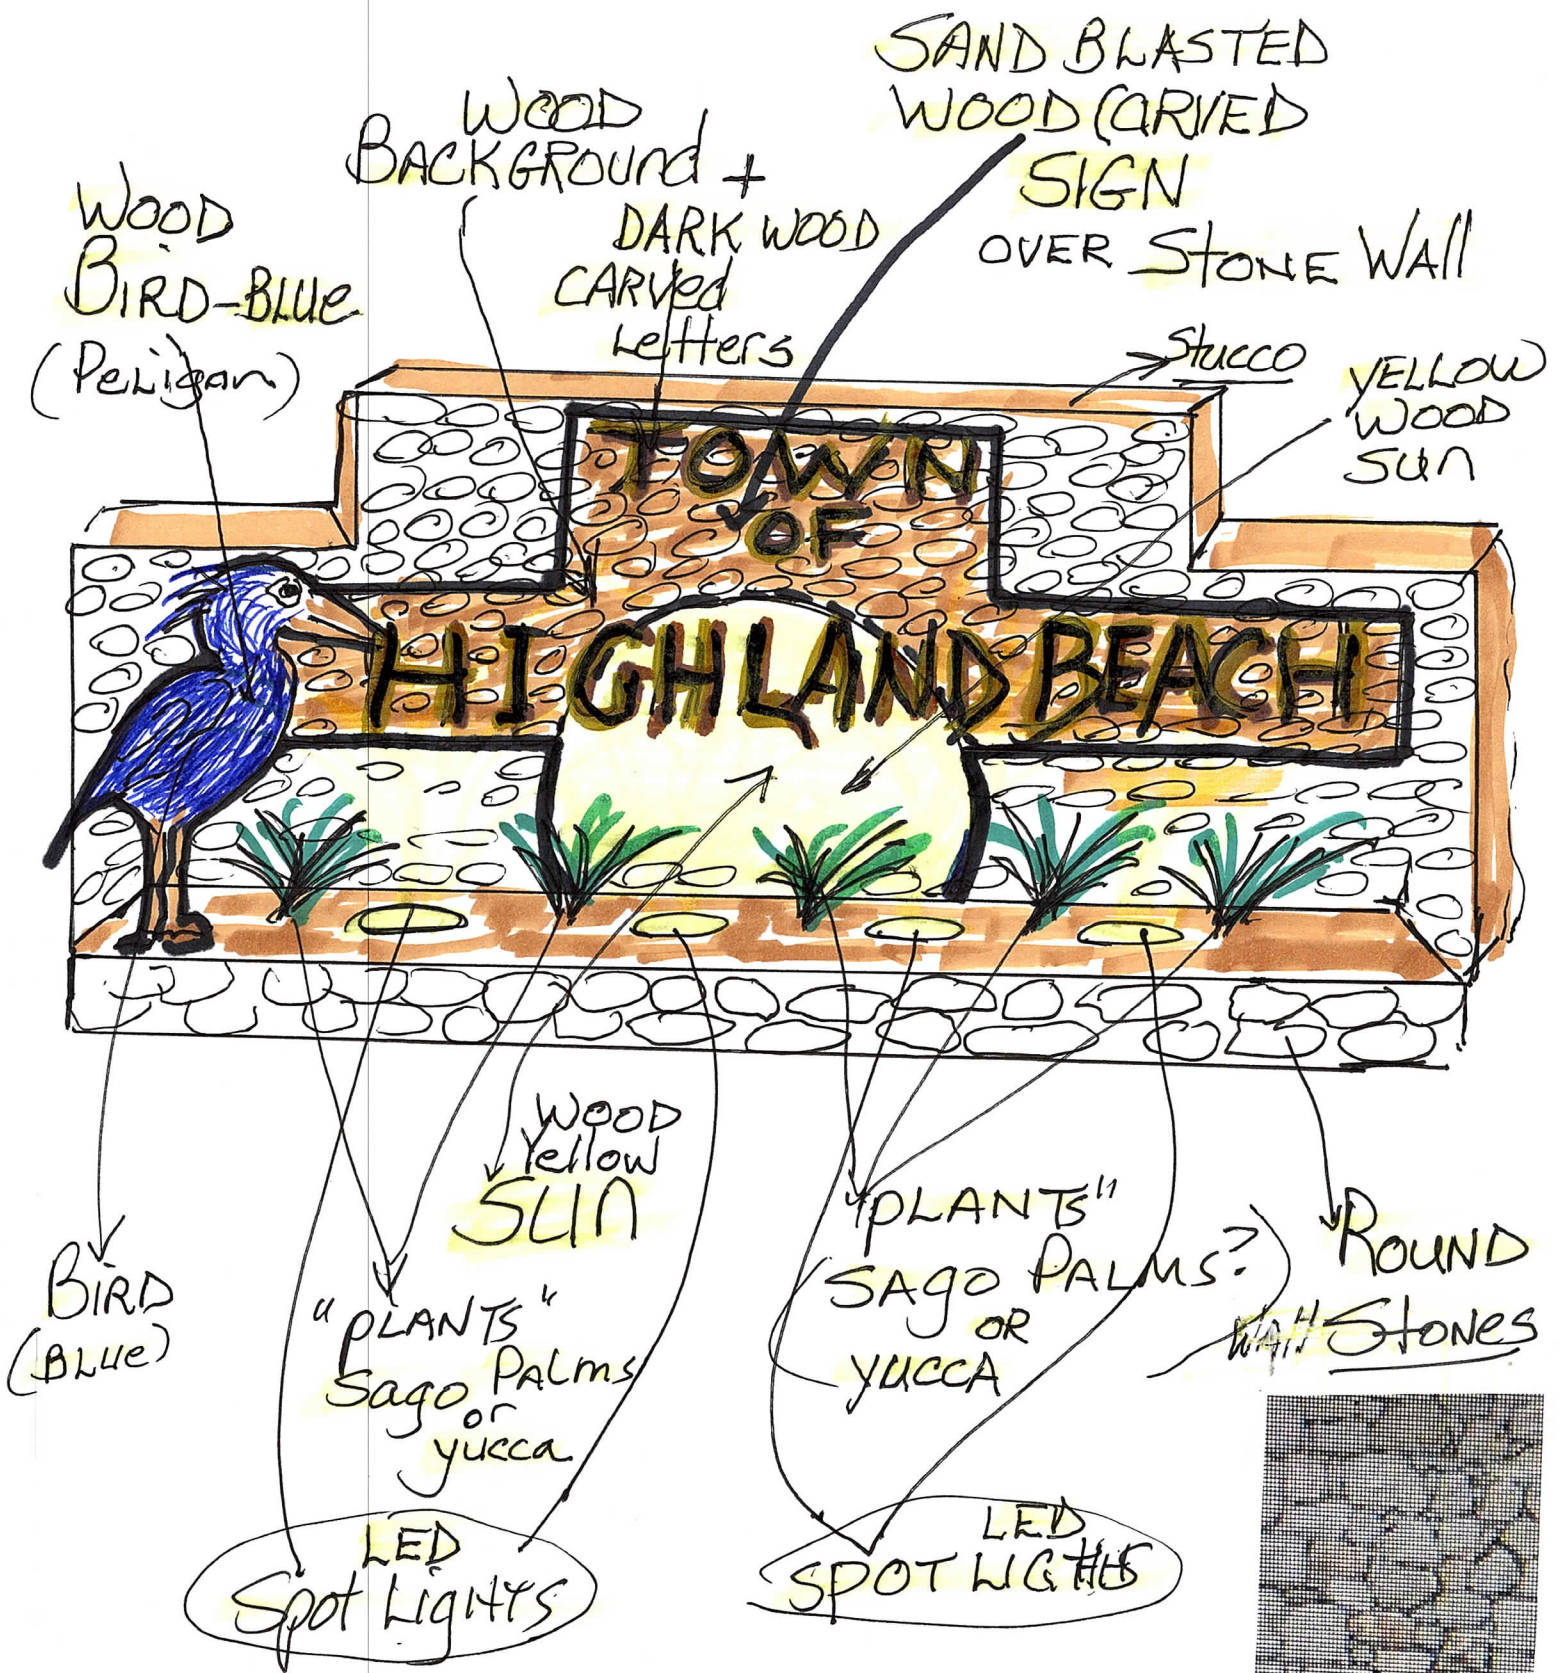 SAND BLASTED
WOOD CARVED
SIGN
OVER STONE WAll
WOOD
BACKGROUnd +
DARK WOOD
CARVed
LeTTers
WOOD
BIRD-BLUe
(PeLigan)
Stucco
YELLOW
WOOD
SUn
TOWN
OF
HIGHLAND BEACH
WOOD
Yellow
SUn
BIRD
(BLUe)
"pLANTS"
Sago PALms
or
yucca
"PLANTS"
(SAgo PALMS?)
OR
YUCCA
ROUND
WAll STONES
LED
Spot LigHTS
LED
SPOT LIGHTS